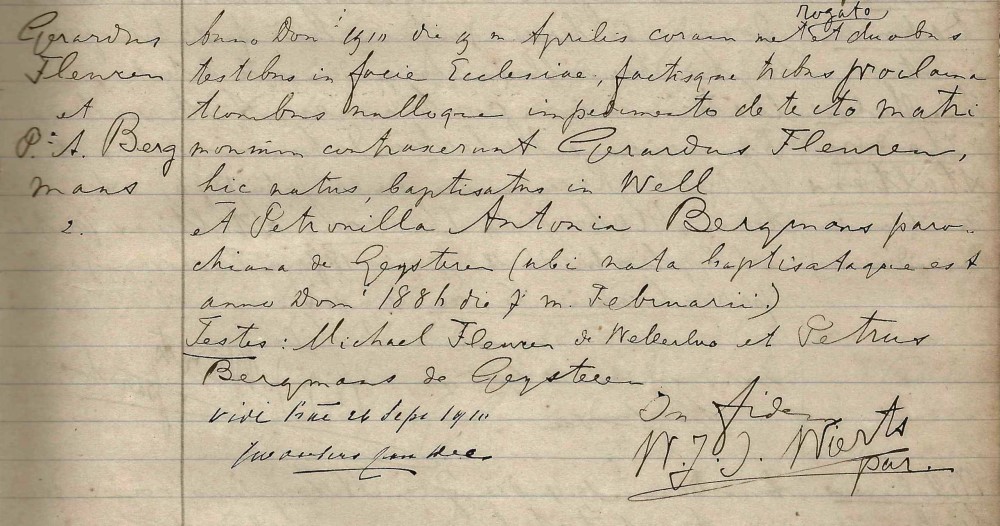 Gerardus
Fleuren
et
P. A. Berg
mans
2.
rogato
Anno Dom 1910 die 9 m Aprilis coram me et duobus
testibus in facie Ecclesiae, factisque tribus proclama
tionibus nulloque impedimento detecto matri
monium contraxerunt Gerardus Fleuren,
hic natus, baptisatus in Well
et Petronilla Antonia Bergmans paro-
chiana de Geysteren (ubi nata baptisataque est
anno Dom 1886 die 7 m. Februarii.)
Testes: Michael Fleuren de Wellerloo et Petrus
Bergmans de Geysteren
Vidi 26 Sept 1910
In fidem
W. J. J. Wierts
par.